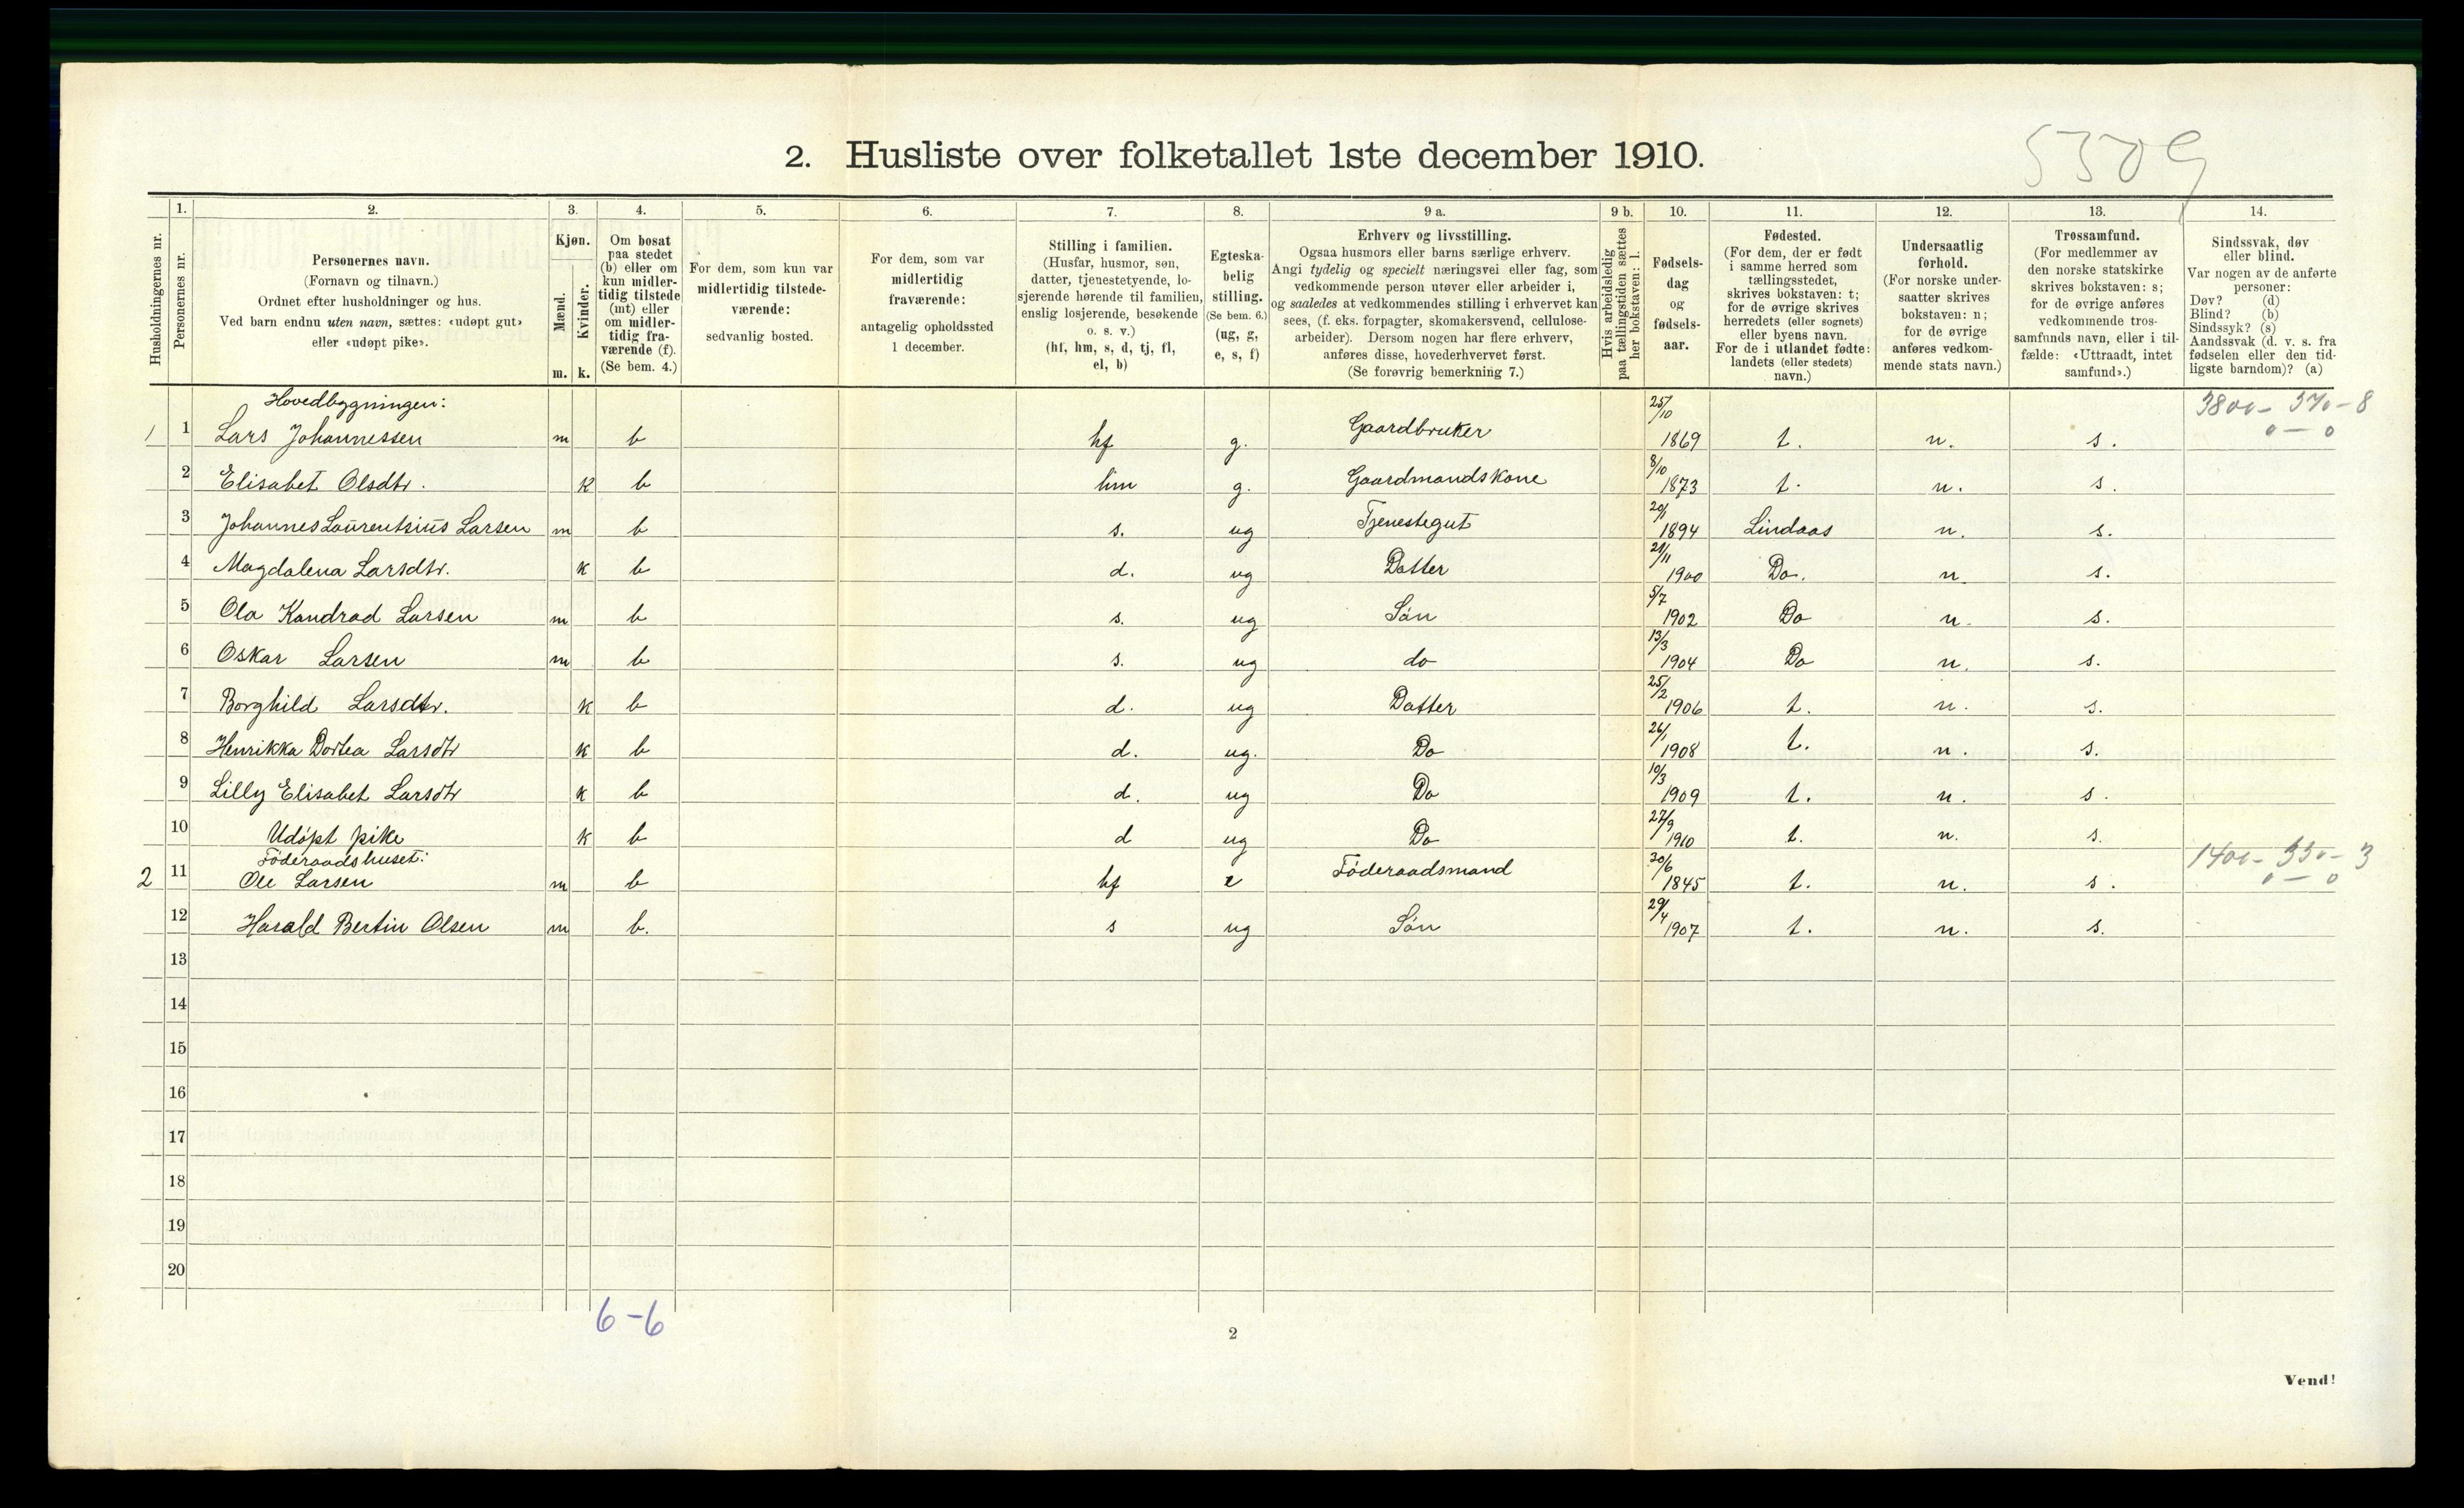 2. Husliste over folketallet 1ste december 1910.
5509
Husholdningernes nr.
1.
Personernes nr.
2.
Personernes navn.
(Fornavn og tilnavn.)
Ordnet efter husholdninger og hus.
Ved barn endnu uten navn, sættes: «udøpt gut»
eller «udøpt pike».
3.
Kjøn.
Mænd.
Kvinder.
m. k.
4.
Om bosat
paa stedet
(b) eller om
kun midler-
tidig tilstede
(mt) eller
om midler-
tidig fra-
værende (f).
(Se bem. 4.)
5.
For dem, som kun var
midlertidig tilstede-
værende:
sedvanlig bosted.
6.
For dem, som var
midlertidig
fraværende:
antagelig opholdssted
1 december.
7.
Stilling i familien.
(Husfar, husmor, søn,
datter, tjenestetyende, lo-
sjerende hørende til familien,
enslig losjerende, besøkende
o. s. v.)
(hf, hm, s, d, tj, fl,
el, b)
8.
Egteska-
belig
stilling.
(Se bem. 6.)
(ug, g,
e, s, f)
9 a.
Erhverv og livsstilling.
Ogsaa husmors eller barns særlige erhverv.
Angi tydelig og specielt næringsvei eller fag, som
vedkommende person utøver eller arbeider i,
og saaledes at vedkommendes stilling i erhvervet kan
sees, (f. eks. forpagter, skomakersvend, cellulose-
arbeider). Dersom nogen har flere erhverv,
anføres disse, hovederhvervet først.
(Se forøvrig bemerkning 7.)
9 b.
Hvis arbeidsledig
paa tællingstiden sættes
her bokstaven: l.
10.
Fødsels-
dag
og
fødsels-
aar.
11.
Fødested.
(For dem, der er født
i samme herred som
tællingsstedet,
skrives bokstaven: t;
for de øvrige skrives
herredets (eller sognets)
eller byens navn.
For de i utlandet fødte:
landets (eller stedets)
navn.)
12.
Undersaatlig
forhold.
(For norske under-
saatter skrives
bokstaven: n;
for de øvrige
anføres vedkom-
mende stats navn.)
13.
Trossamfund.
(For medlemmer av
den norske statskirke
skrives bokstaven: s;
for de øvrige anføres
vedkommende tros-
samfunds navn, eller i til-
fælde: «Uttraadt, intet
samfund».)
14.
Sindssvak, døv
eller blind.
Var nogen av de anførte
personer:
Døv? (d)
Blind? (b)
Sindssyk? (s)
Aandssvak (d. v. s. fra
fødselen eller den tid-
ligste barndom)? (a)
Hovedbygningen:
1 1 Lars Johannessen m b hf g. Gaardbruker 25/10 1869 t. n. s. 3800 - 370 - 8
0 - 0
2 Elisabet Olsdtr. K b hm g. Gaardmandskone 8/10 1873 t. n. s.
3 Johannes Laurentsius Larsen m b s. ug Tjenestegut 20/1 1894 Lindaas n. s.
4 Magdalena Larsdtr. k b d. ug Datter 21/11 1900 Do. n. s.
5 Ola Kandrad Larsen m b s. ug Søn 5/7 1902 Do n. s.
6 Oskar Larsen m b s. ug do 13/3 1904 Do n. s.
7 Borghild Larsdtr. k b d. ug Datter 25/2 1906 t. n. s.
8 Henrikka Dortea Larsdtr k b d. ug. Do 26/1 1908 t. n. s.
9 Lilly Elisabet Larsdtr k b d. ug Do 10/3 1909 t. n. s.
10 Udøpt pike k b d ug Do 27/9 1910 t. n. s.
Føderaadshuset:
2 11 Ole Larsen m b hf e Føderaadsmand 30/6 1845 t. n. s. 1400 - 330 - 3
0 - 0
12 Harald Bertin Olsen m b. s ug Søn 29/4 1907 t. n. s.
13
14
15
16
17
18
19
20
6-6
2
Vend!